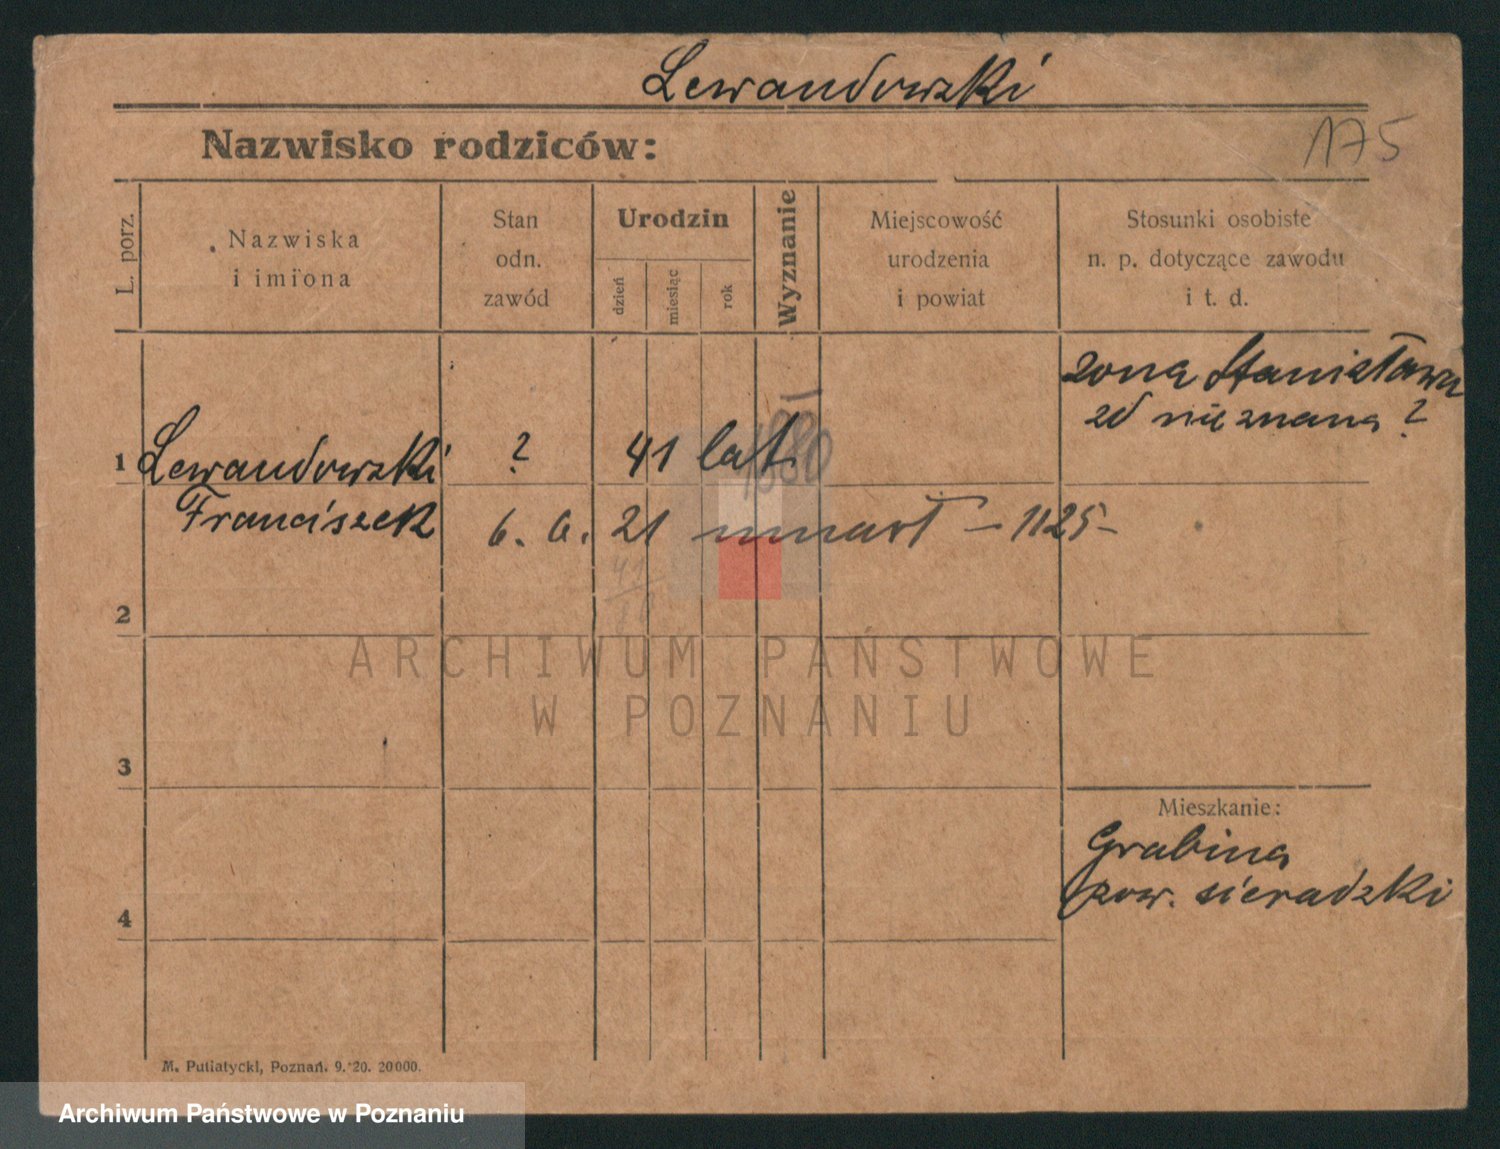 Lewandowski
Nazwisko rodziców:
175
L. porz.
Nazwiska
i imiona
Stan
odn.
zawód
Urodzin
dzień
miesiąc
rok
Wyznanie
Miejscowość
urodzenia
i powiat
Stosunki osobiste
n. p. dotyczące zawodu
i t. d.
żona Stanisława
zd nieznana ?
1 Lewandowski ? 41 lat
1880
Franciszek 6. 6. 21 umarł – 1125 –
41
2
ARCHIWUM PAŃSTWOWE
W POZNANIU
3
Mieszkanie:
Grabina
pow. sieradzki
4
M. Putiatycki, Poznań. 9. 20. 20000.
Archiwum Państwowe w Poznaniu